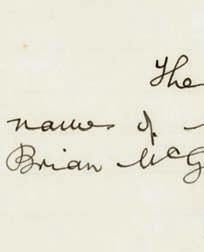 The
names of
Brian McG